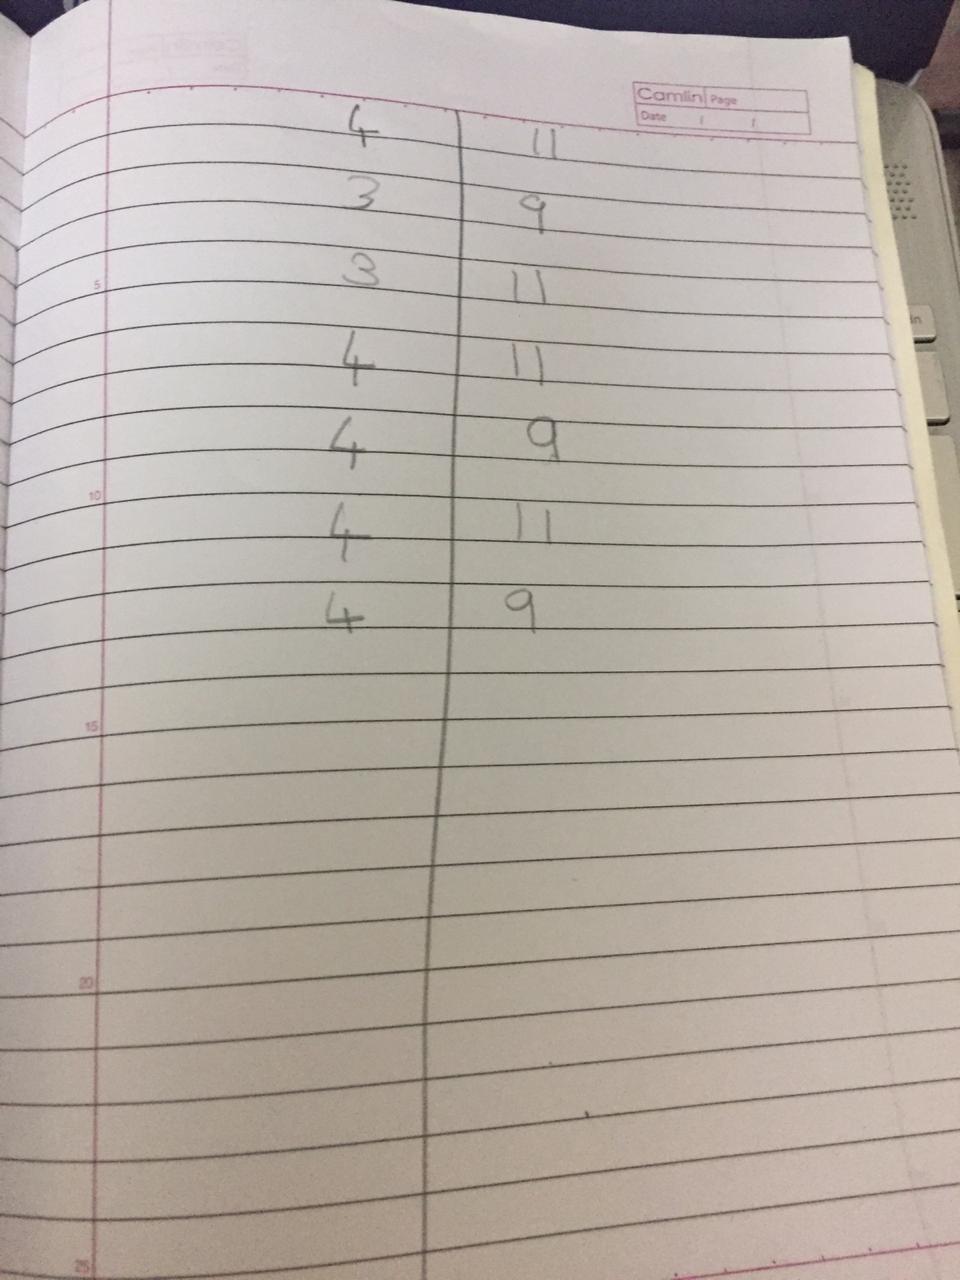 Camlin Page
Date / /
4 11
3 9
3 11
5
4 11
4 9
10
4 11
4 9
15
20
25